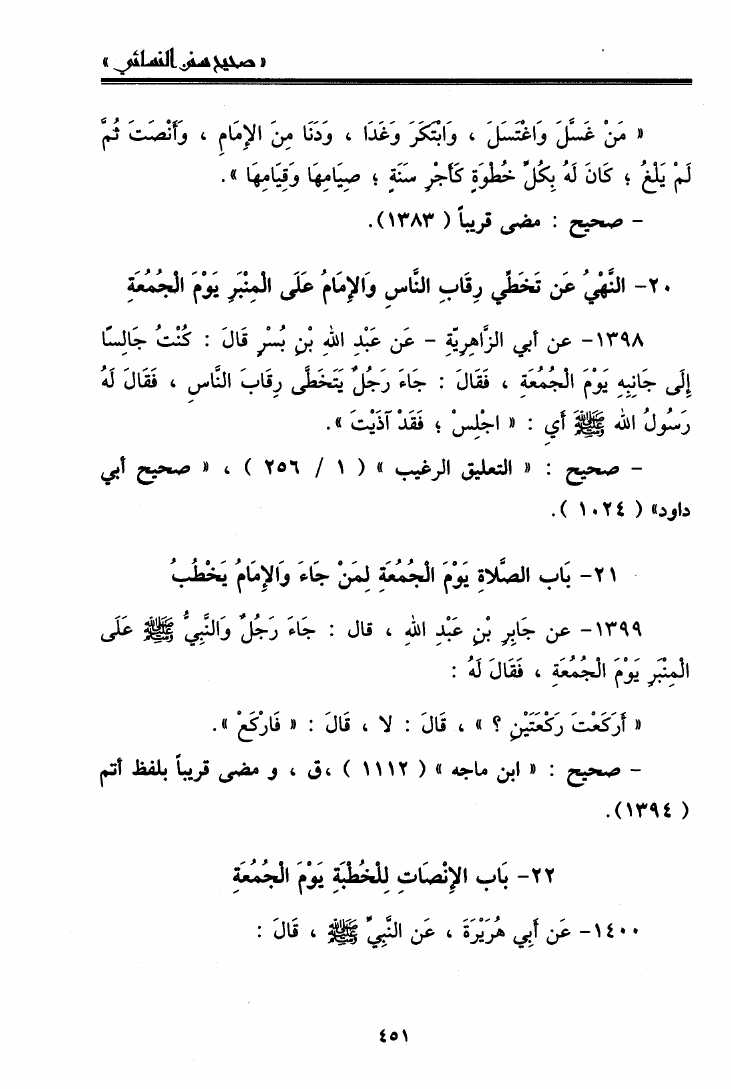 « صحيح سنن النسائي »
« مَنْ غَسَّلَ وَاغْتَسَلَ ، وَابْتَكَرَ وَغَدَا ، وَدَنَا مِنَ الإِمَامِ ، وَأَنْصَتَ ثُمَّ
لَمْ يَلْغُ ؛ كَانَ لَهُ بِكُلِّ خُطْوَةٍ كَأَجْرِ سَنَةٍ ؛ صِيَامِهَا وَقِيَامِهَا ».
– صحيح : مضى قريباً ( ١٣٨٣).
٢٠– النَّهْيُ عَن تَخَطِّي رِقَابِ النَّاسِ وَالإِمَامُ عَلَى الْمِنْبَرِ يَوْمَ الْجُمُعَةِ
١٣٩٨– عن أبي الزَّاهِرِيَّةِ – عَن عَبْدِ اللهِ بْنِ بُسْرٍ قَالَ : كُنْتُ جَالِسًا
إِلَى جَانِبِهِ يَوْمَ الْجُمُعَةِ ، فَقَالَ : جَاءَ رَجُلٌ يَتَخَطَّى رِقَابَ النَّاسِ ، فَقَالَ لَهُ
رَسُولُ اللهِ ﷺ أَيِ : « اجْلِسْ ؛ فَقَدْ آذَيْتَ ».
– صحيح : « التعليق الرغيب » ( ١ / ٢٥٦ ) ، « صحيح أبي
داود» ( ١٠٢٤ ).
٢١– بَاب الصَّلاةِ يَوْمَ الْجُمُعَةِ لِمَنْ جَاءَ وَالإِمَامُ يَخْطُبُ
١٣٩٩– عن جَابِرِ بْنِ عَبْدِ اللهِ ، قال : جَاءَ رَجُلٌ وَالنَّبِيُّ ﷺ عَلَى
الْمِنْبَرِ يَوْمَ الْجُمُعَةِ ، فَقَالَ لَهُ :
« أَرَكَعْتَ رَكْعَتَيْنِ ؟ » ، قَالَ : لا ، قَالَ : « فَارْكَعْ ».
– صحيح : « ابن ماجه » ( ١١١٢ ) ،ق ، و مضى قريباً بلفظ أتم
( ١٣٩٤).
٢٢– بَاب الإِنْصَاتِ لِلْخُطْبَةِ يَوْمَ الْجُمُعَةِ
١٤٠٠– عَن أَبِي هُرَيْرَةَ ، عَن النَّبِيِّ ﷺ ، قَالَ :
٤٥١